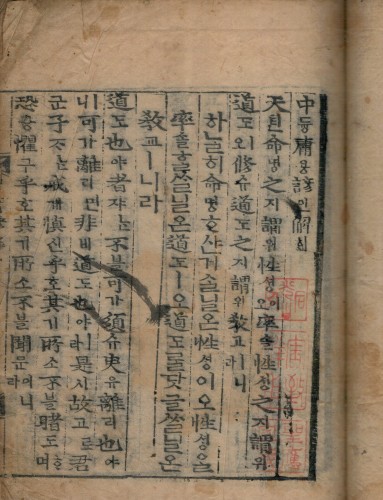 中듕庸용諺언解ᄒᆡ
天텬命명之지謂위性셩이오率솔性셩之지謂위
道도오修슈道도之지謂위敎교ㅣ니라
하ᄂᆞᆯ히命명ᄒᆞ샨거슬닐온性셩이오性셩을
率솔ᄒᆞᆯᄊᆞᆯ닐온道도ㅣ오道도ᄅᆞᆯ닷글ᄊᆞᆯ닐온
敎교ㅣ니라
道도也야者쟈ᄂᆞᆫ不블可가須슈臾유離리也야
니可가離리면非비道도也야라是시故고로君
군子ᄌᆞᄂᆞᆫ戒계愼신乎호其기所소不블睹도ᄒᆞ며
恐공懼구乎호其기所소不블聞문이니라